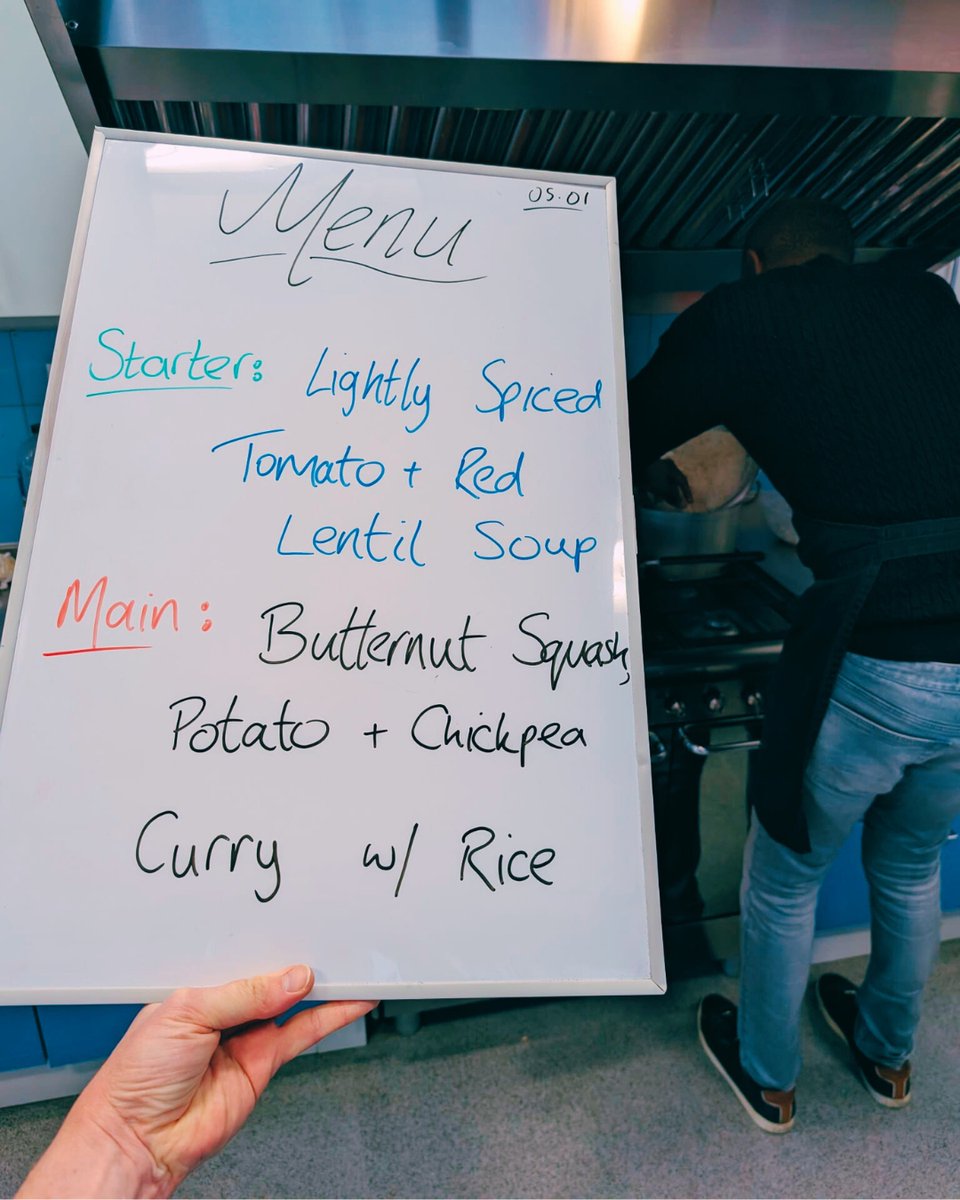 Menu
05.01
Starter: Lightly Spiced
Tomato + Red
Lentil Soup
Main: Butternut Squash,
Potato + Chickpea
Curry w/ Rice